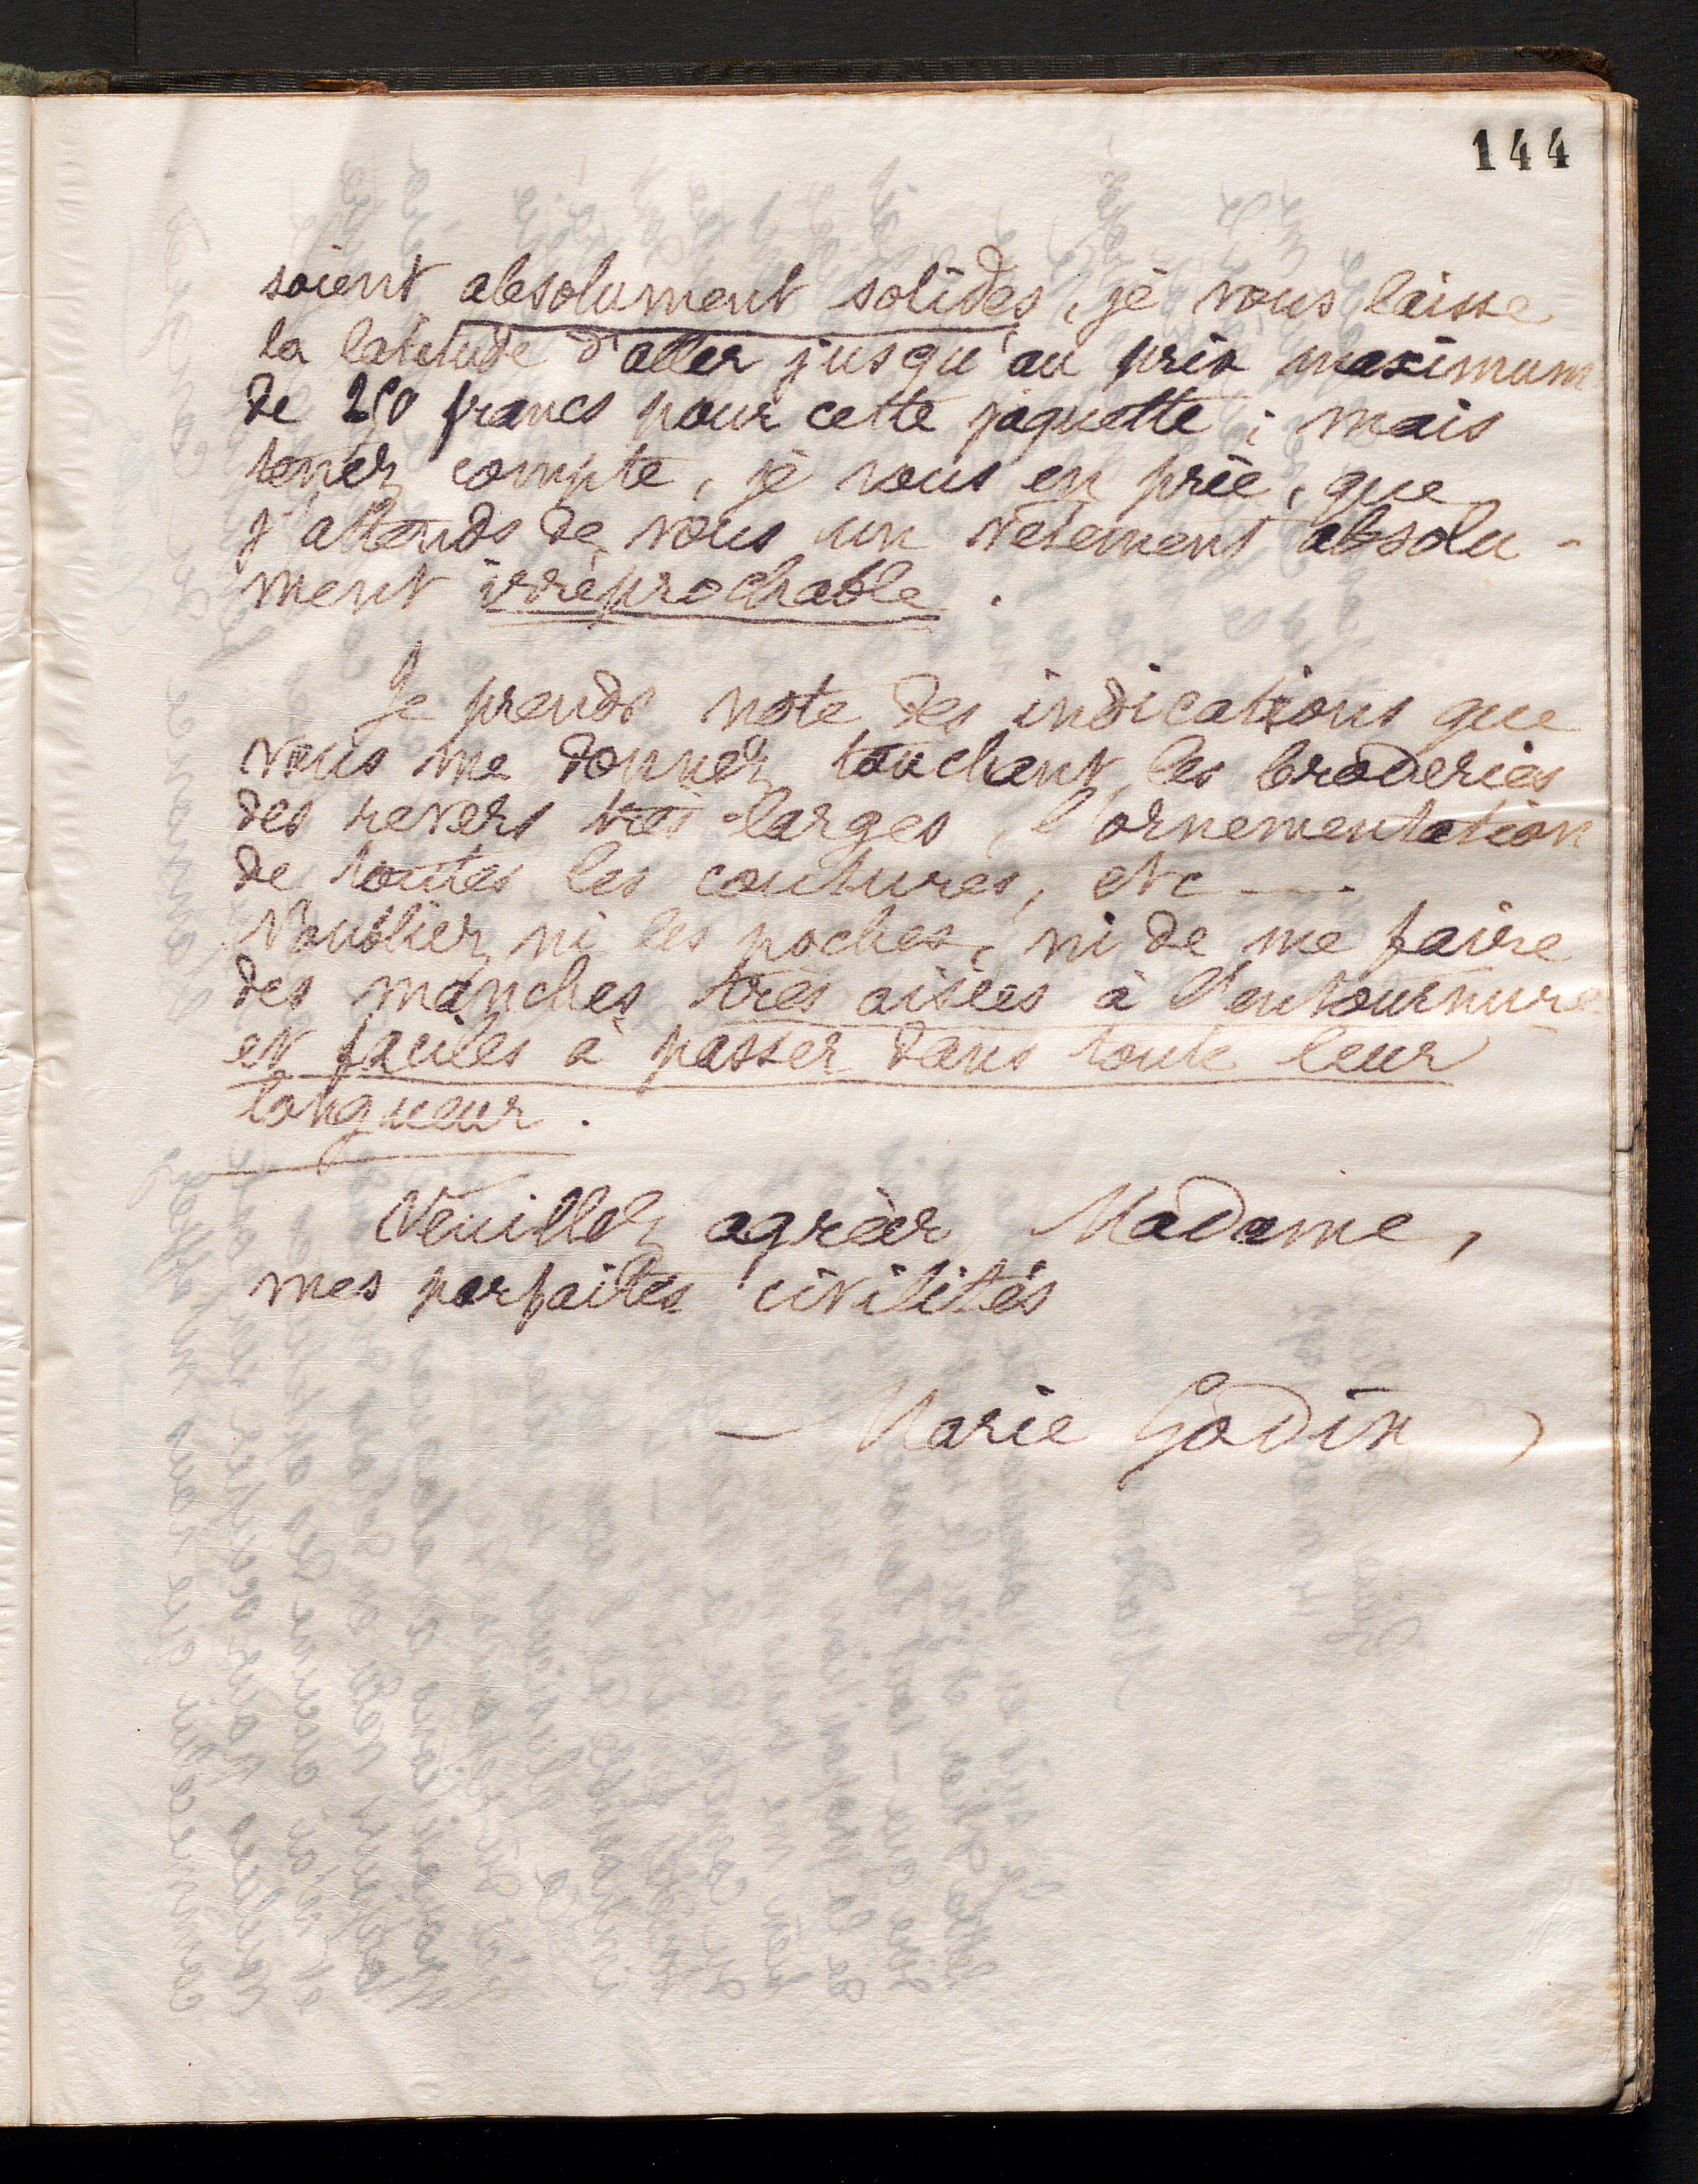 144
soient absolument solides, je vous laisse
la latitude d'aller jusqu'au prix maximum
de 250 francs pour cette jaquette ; mais
tenez compte, je vous en prie, que
j'attends de vous un vêtement absolu-
ment irréprochable.
Je prends note des indications que
vous me donnez touchant les broderies
des revers très-larges, l'ornementation
de toutes les coutures, etc ----
N'oubliez ni les poches, ni de me faire
des manches très aisées à l'entournure
et faciles à passer dans toute leur
longueur.
Veuillez agréer Madame,
mes parfaites civilités
— Marie Godin